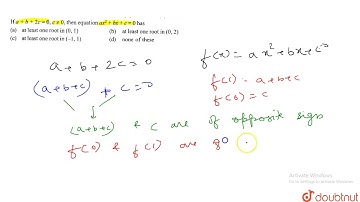 If a + b + 2c = 0, c ≠ 0, then equation ax² + bx + c = 0 has
(a) at least one root in (0, 1) (b) at least one root in (0, 2)
(c) at least one root in (–1, 1) (d) none of these
a + b + 2c = 0
(a+b+c) + c = 0
f(x) = ax² + bx + c = 0
f(1) - a+b+c
f(0) = c
(a+b+c) & c are of opposite sign
f(0) & f(1) are
Activate Windows
Go to Settings to activate Windows.
doubtnut